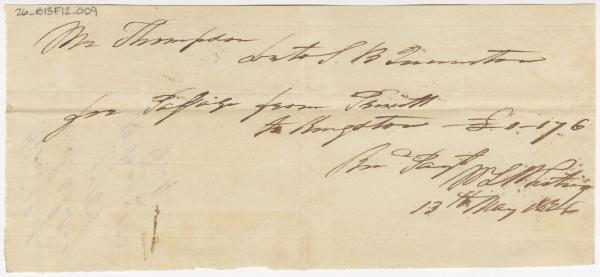 26_B13F12_009
Mr Thompson
Dr to S. B Queenston
for Passage from Prescott
to Kingston — £ 0-17 6
Recd Payt
W L Whiting
13th May 1826